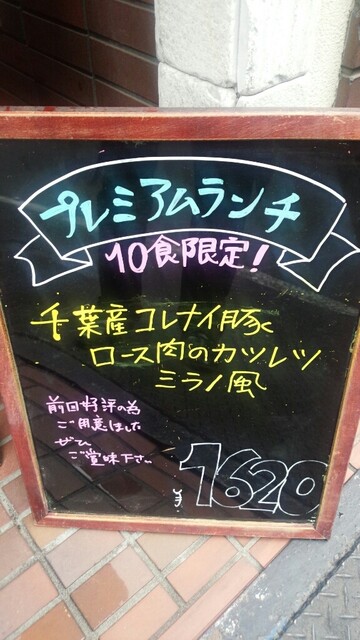 プレミアムランチ
10食限定!
千葉産コレナイ豚
ロース肉のカツレツ
ミラノ風
前回好評の為
ご用意しました
ぜひ
ご賞味下さい
¥1620